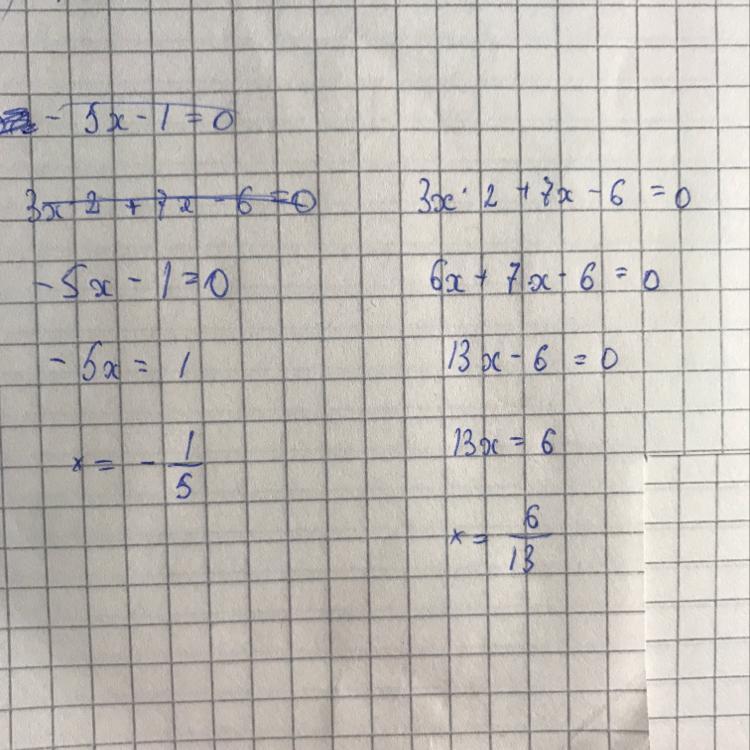 - 5x - 1 = 0
3x 2 + 7x - 6 = 0
- 5x - 1 = 0
- 5x = 1
x = - 1/5
3x · 2 + 7x - 6 = 0
6x + 7x - 6 = 0
13x - 6 = 0
13x = 6
x = 6/13